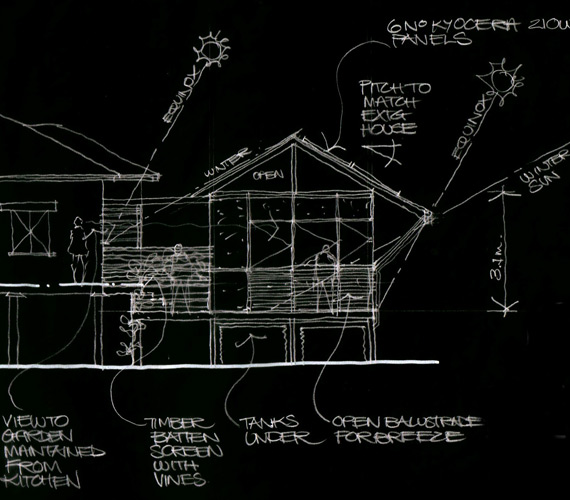 6 Nº KYOCERA 210W
PANELS
PITCH TO
MATCH
EXTG
HOUSE
EQUINOX
EQUINOX
WINTER
OPEN
WINTER
SUN
VIEW TO
GARDEN
MAINTAINED
FROM
KITCHEN
TIMBER
BATTEN
SCREEN
WITH
VINES
TANKS
UNDER
OPEN BALUSTRADE
FOR BREEZE